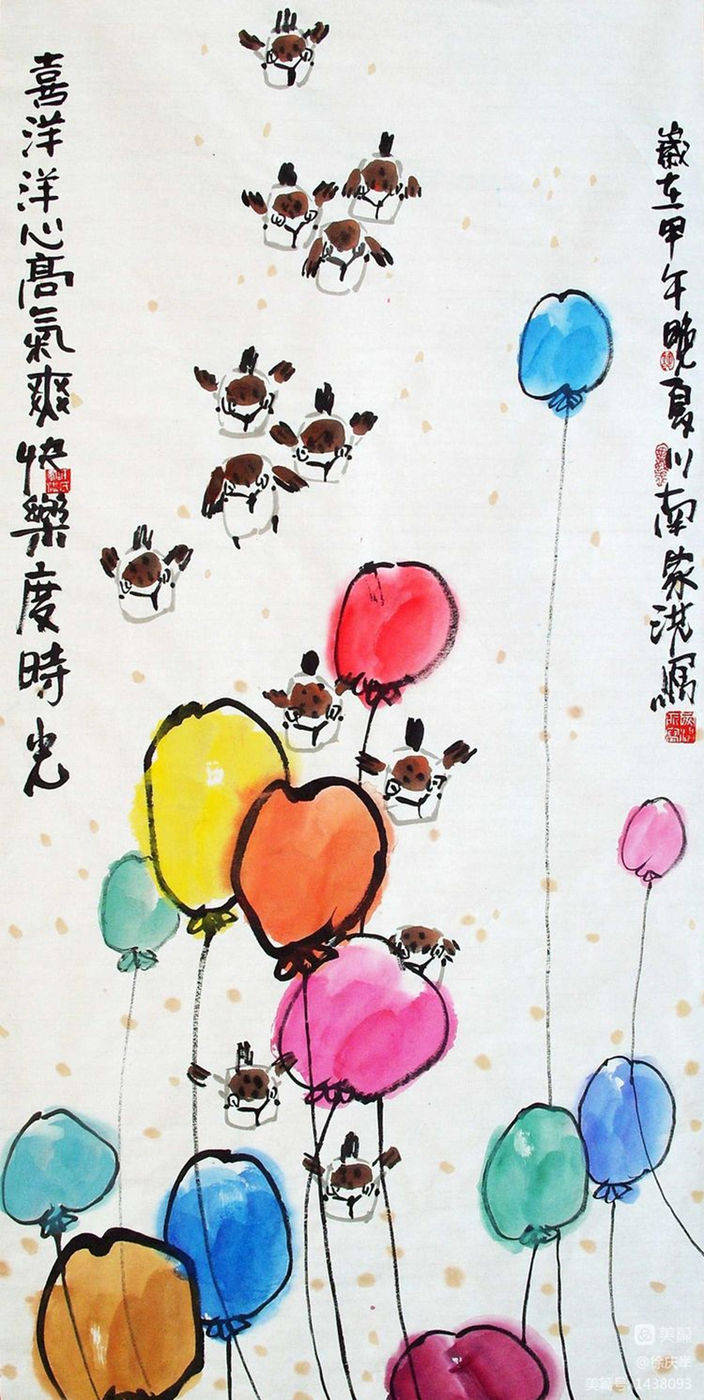 歲在甲午晚夏川南家洪寫
喜洋洋心高氣爽快樂度時光
美篇
@徐庆岸
美篇号:1438093